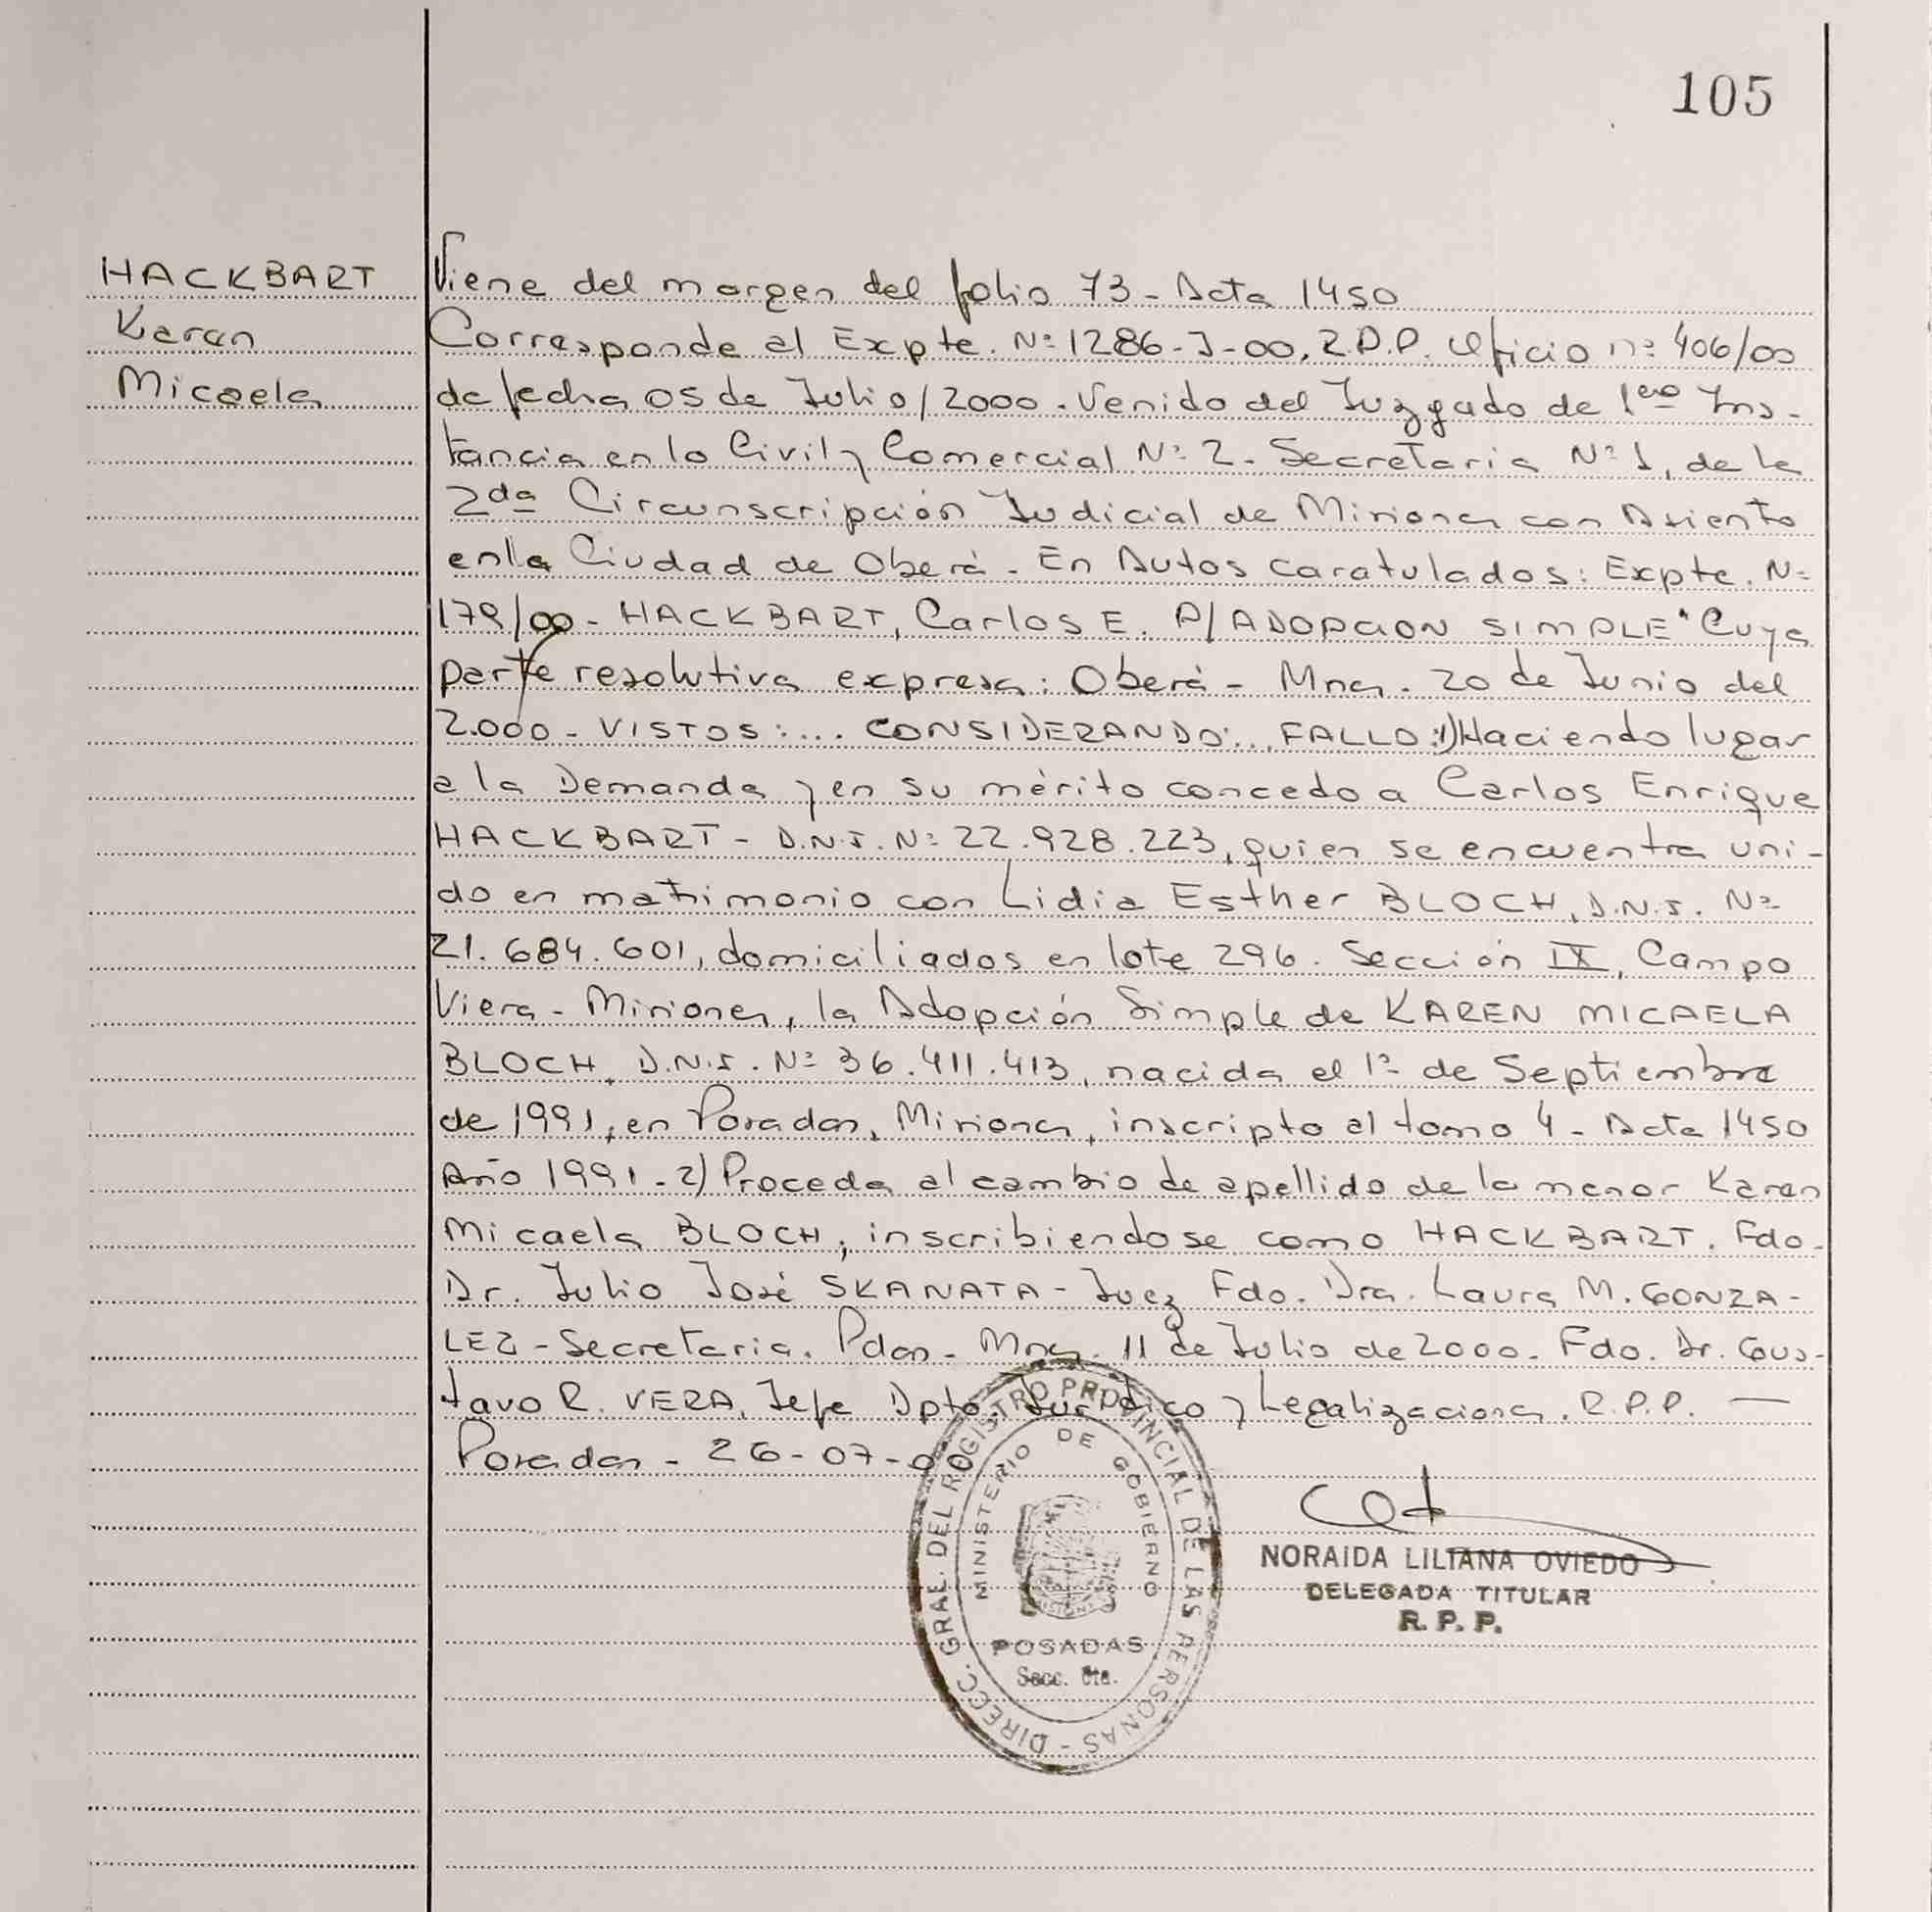 105
HACKBART
Karen
Micaela
Viene del margen del folio 73 - Acta 1450
Corresponde al Expte. Nº 1286-J-00. R.P.P. Oficio nº 406/00
de fecha 05 de Julio/2000. Venido del Juzgado de 1era Ins-
tancia en lo Civil y Comercial Nº 2. Secretaria Nº 1, de la
2da Circunscripción Judicial de Misiones con Asiento
en la Ciudad de Oberá. En Autos caratulados: Expte. Nº
179/00 - HACKBART, Carlos E. P/ ADOPCION SIMPLE" Cuya
parte resolutiva expresa: Oberá - Mnes. 20 de Junio del
2.000 - VISTOS:... CONSIDERANDO:.. FALLO:1) Haciendo lugar
a la Demanda y en su mérito concedo a Carlos Enrique
HACKBART - D.N.I. Nº 22.928.223, quien se encuentra uni-
do en matrimonio con Lidia Esther BLOCH, D.N.I. Nº
21.684.601, domiciliados en lote 296. Sección IX, Campo
Viera - Misiones, la Adopción Simple de KAREN MICAELA
BLOCH, D.N.I. Nº 36.411.413, nacida el 1º de Septiembre
de 1991, en Posadas, Misiones, inscripto al tomo 4 - Acta 1450
Año 1991 - 2) Proceda al cambio de apellido de la menor Karen
Micaela BLOCH, inscribiendose como HACKBART. Fdo.
Dr. Julio José SKANATA - Juez Fdo. Dra. Laura M. GONZA-
LEZ - Secretaria. Pdas. Mnes. 11 de Julio de 2000. Fdo. Dr. Gus-
tavo R. VERA, Jefe Dpto. Jurídico y Legalizaciones. R.P.P. —
Posadas - 26-07-00
DIRECC. GRAL. DEL REGISTRO PROVINCIAL DE LAS PERSONAS -
MINISTERIO DE GOBIERNO
POSADAS
Secc. 6ta.
NORAIDA LILIANA OVIEDO
DELEGADA TITULAR
R. P. P.